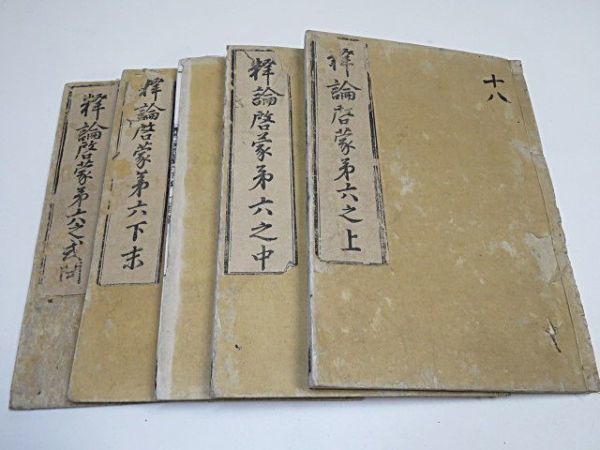 十八
釋論啓蒙第六之上
釋論啓蒙第六之中
釋論啓蒙第六下末
釋論啓蒙第六之